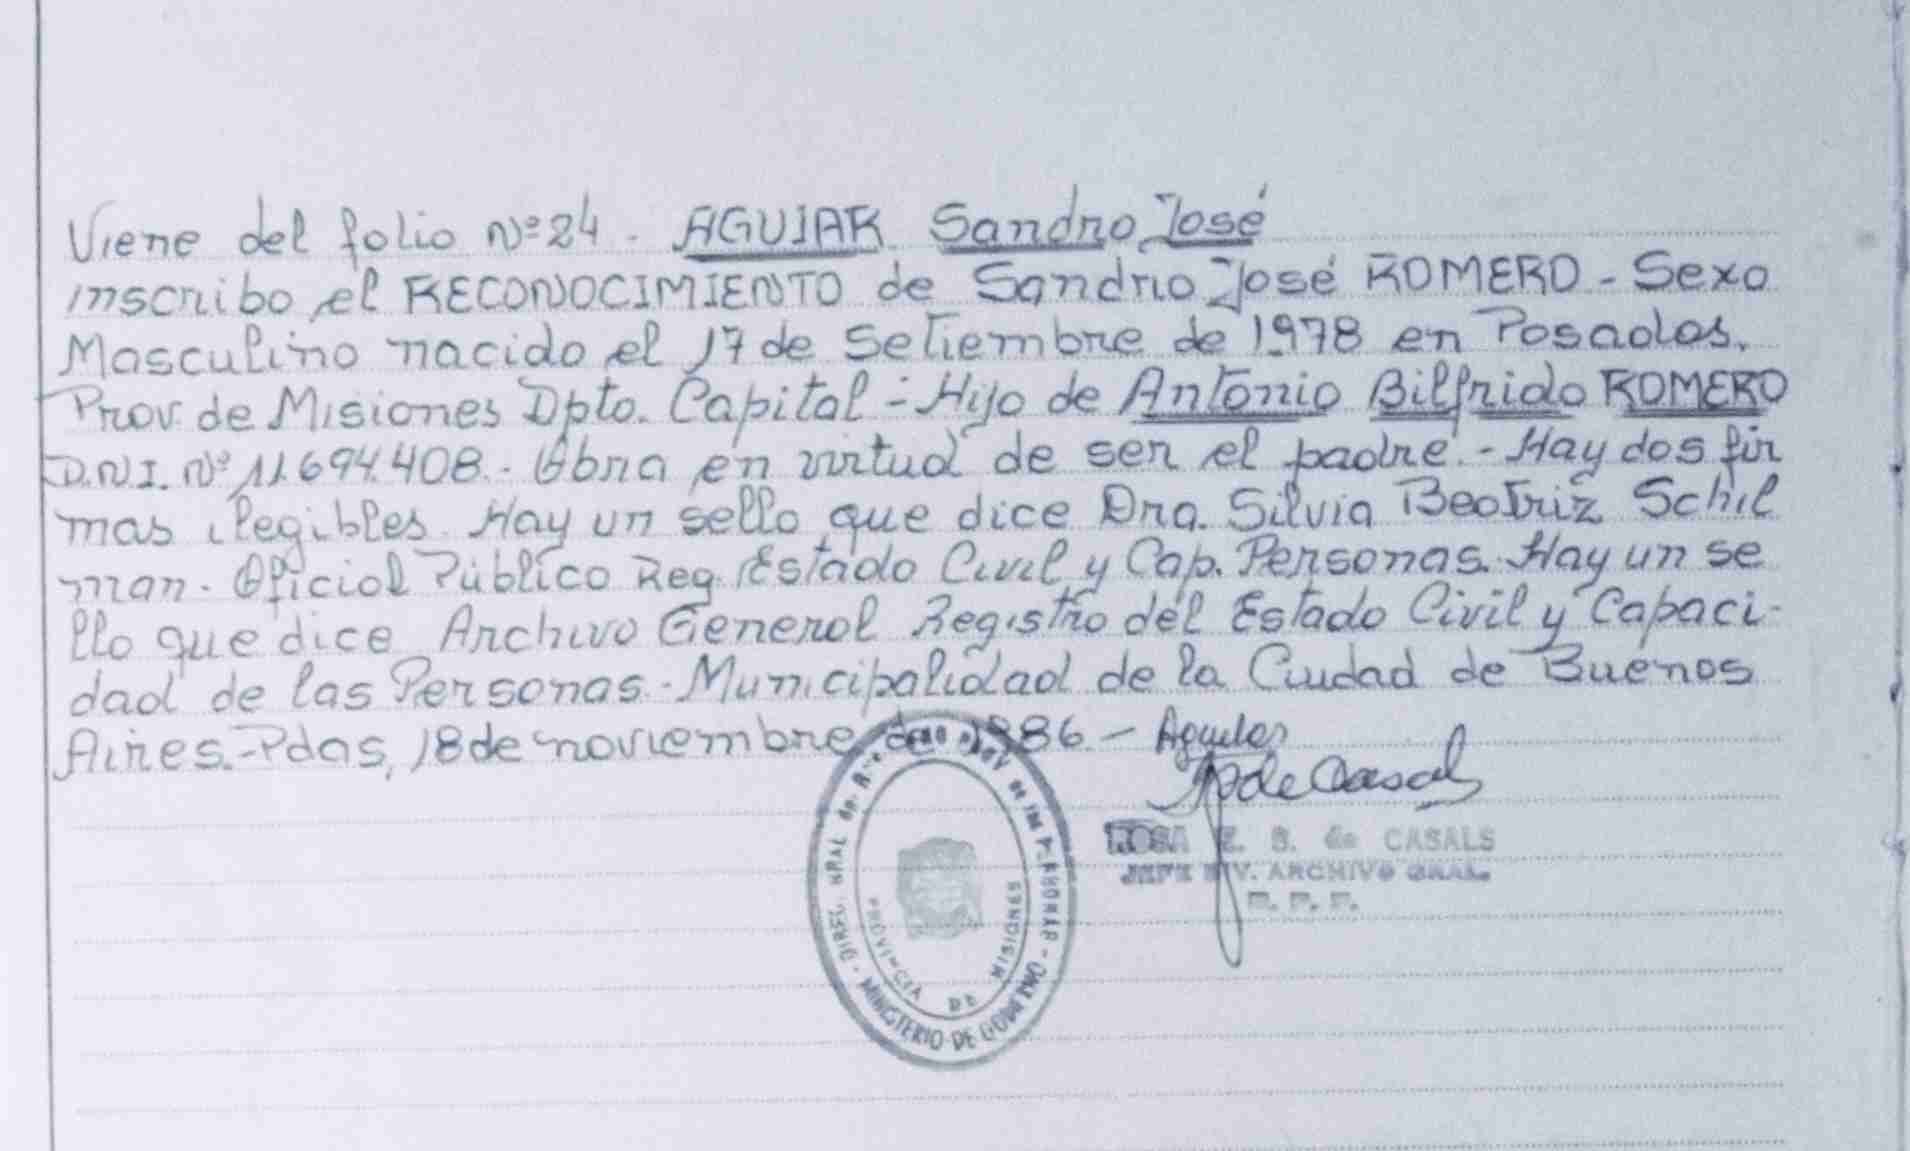 Viene del folio Nº 24 - AGUIAR Sandro José
inscribo el RECONOCIMIENTO de Sandro José ROMERO - Sexo
Masculino nacido el 17 de Setiembre de 1978 en Posadas.
Prov. de Misiones Dpto. Capital - Hijo de Antonio Bilfrido ROMERO
D.N.I. Nº 11.694.408.- Obra en virtud de ser el padre.- Hay dos fir
mas ilegibles. Hay un sello que dice Dra. Silvia Beatriz Schil
man. Oficial Público Reg. Estado Civil y Cap. Personas. Hay un se
llo que dice Archivo General Registro del Estado Civil y Capaci-
dad de las Personas.- Municipalidad de la Ciudad de Buenos
Aires.- Pdas, 18 de noviembre de 1986.-
de Casals
ROSA E. S. de CASALS
JEFE DIV. ARCHIVO GRAL.
DIREC. GRAL
DE LAS PERSONAS
PROVINCIA DE MISIONES
- MINISTERIO DE GOBIERNO -